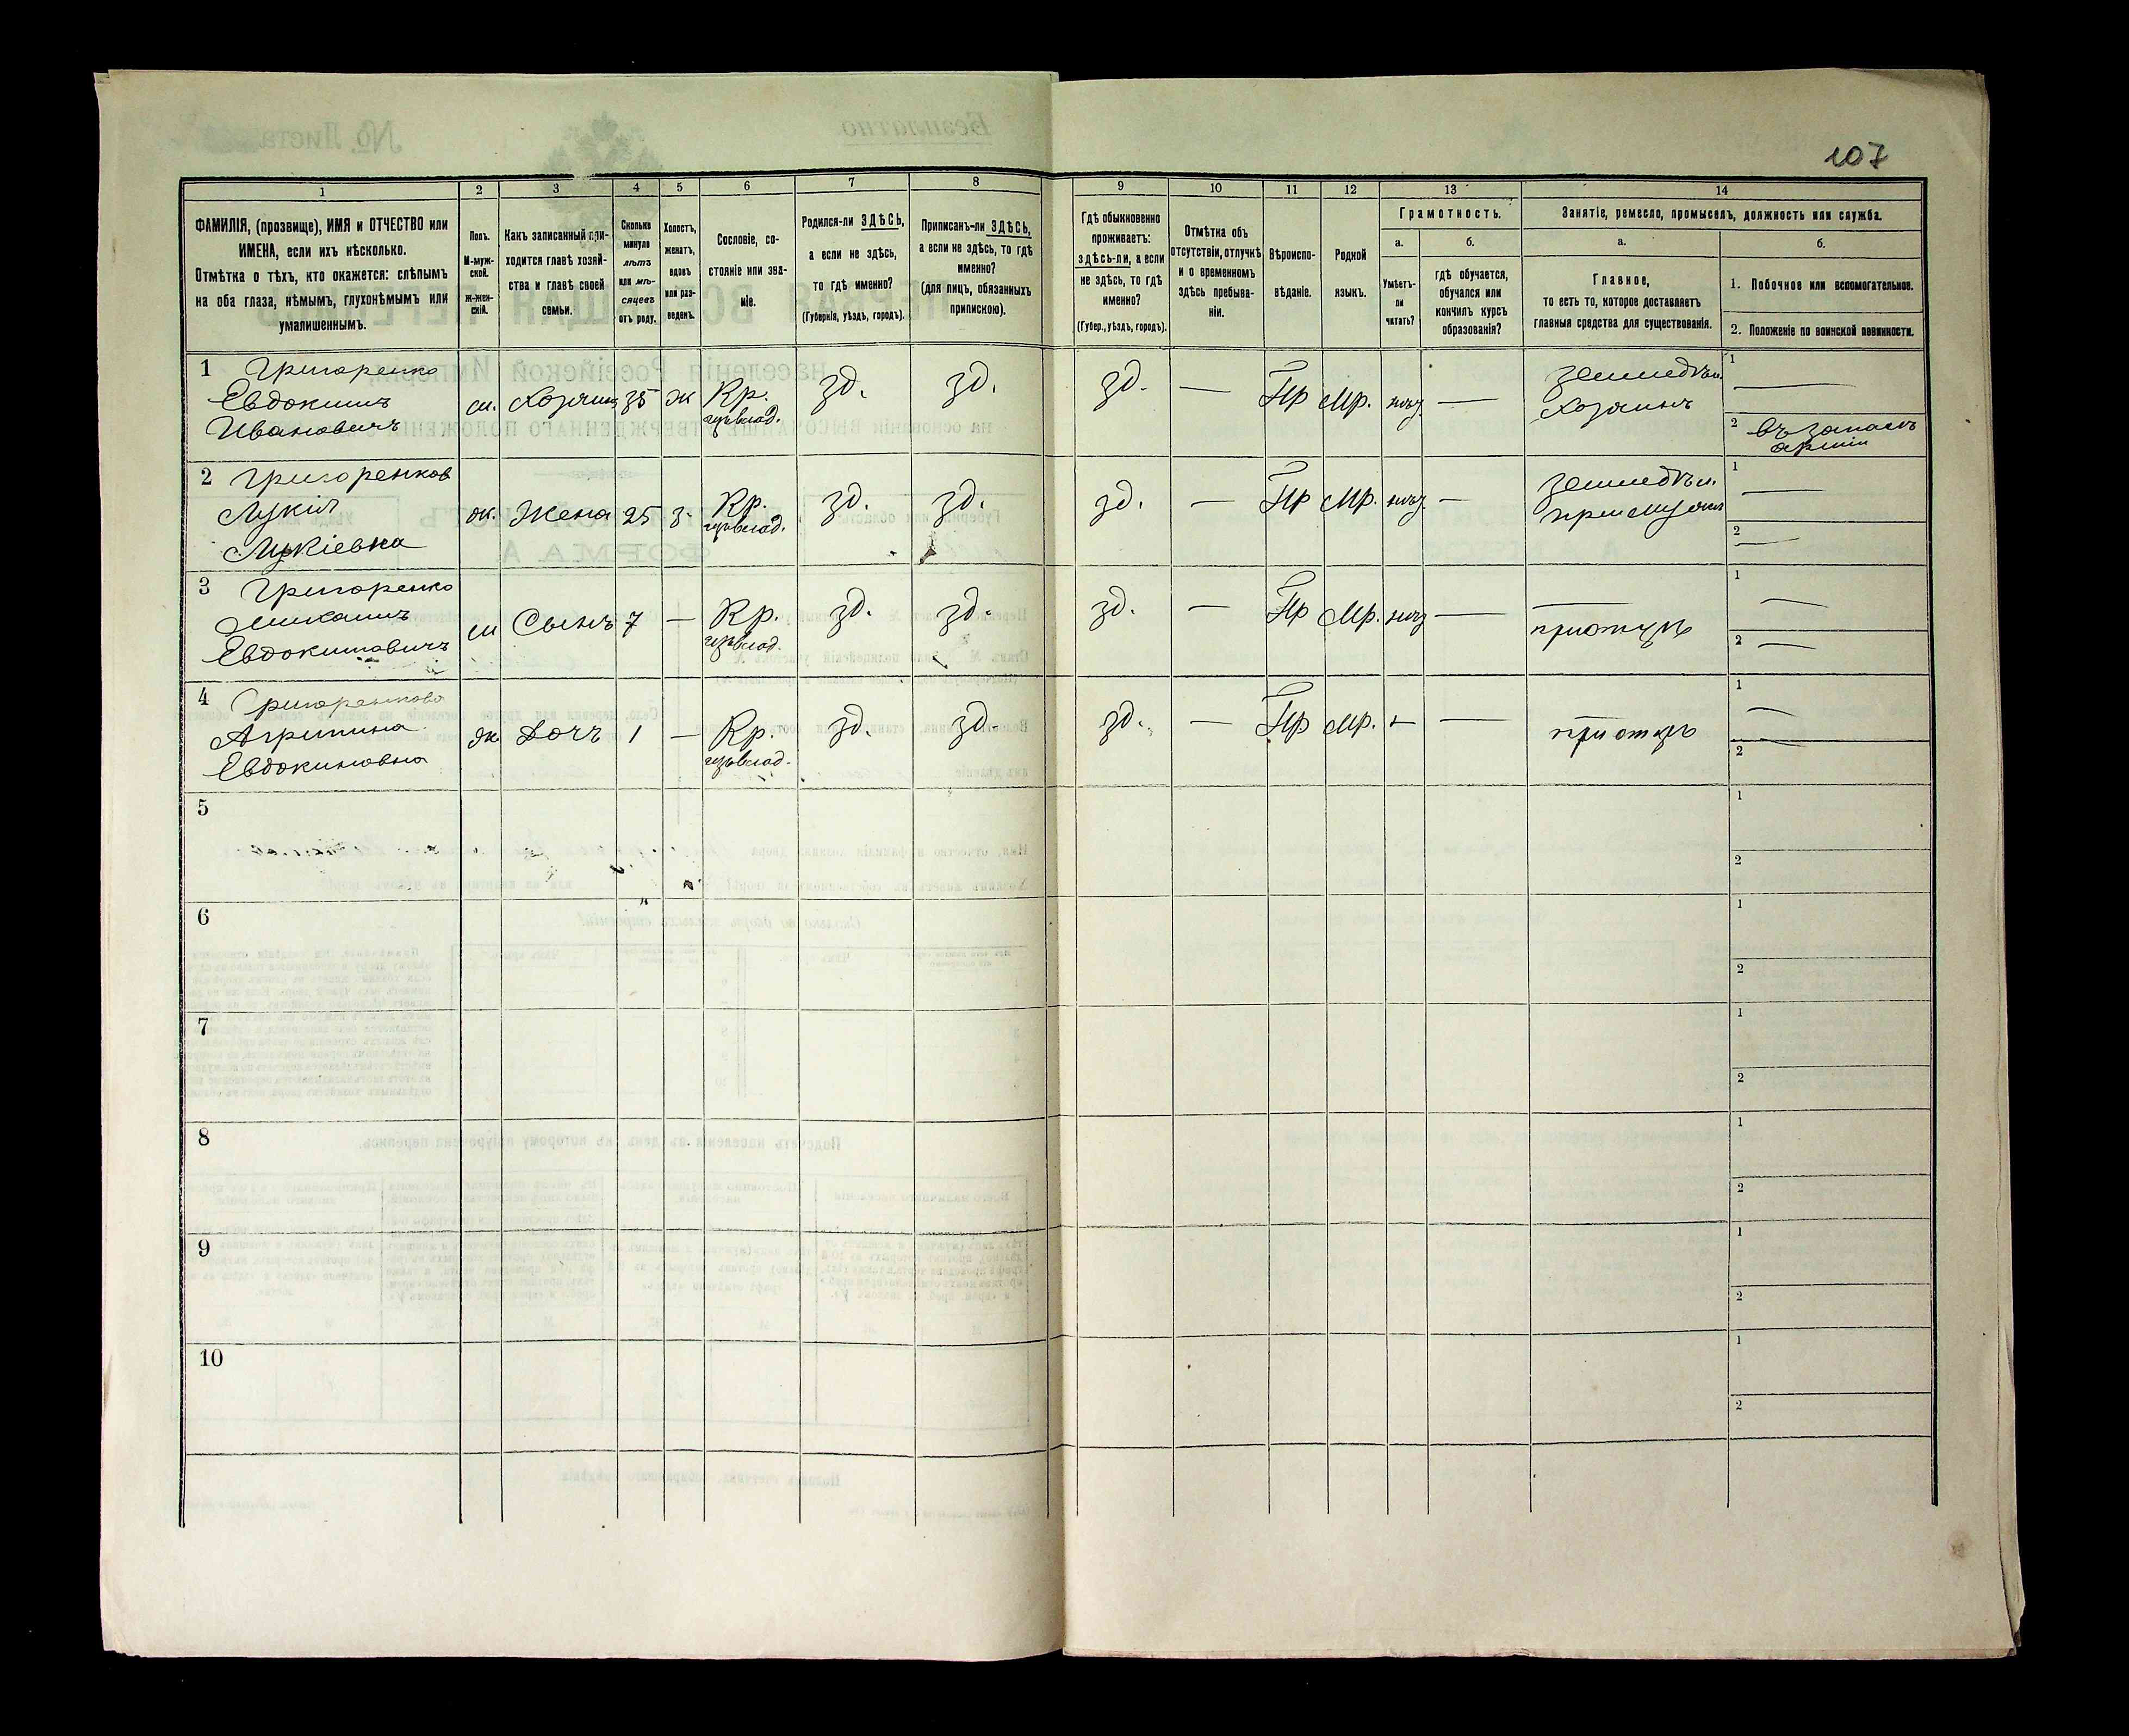 107
1
2
3
4
5
6
7
8
9
10
11
12
13
14
ФАМИЛІЯ, (прозвище), ИМЯ и ОТЧЕСТВО или
ИМЕНА, если ихъ нѣсколько.
Отмѣтка о тѣхъ, кто окажется: слѣпымъ
на оба глаза, нѣмымъ, глухонѣмымъ или
умалишеннымъ.
Полъ.
М-муж-
ской.
Ж-жен-
скій.
Какъ записанный при-
ходится главѣ хозяй-
ства и главѣ своей
семьи.
Сколько
минуло
лѣтъ
или мѣ-
сяцевъ
отъ роду.
Холостъ,
женатъ,
вдовъ
или раз-
веденъ.
Сословіе, со-
стояніе или зва-
ніе.
Родился-ли ЗДѢСЬ,
а если не здѣсь,
то гдѣ именно?
(Губернія, уѣздъ, городъ).
Приписанъ-ли ЗДѢСЬ,
а если не здѣсь, то гдѣ
именно?
(для лицъ, обязанныхъ
припискою).
Гдѣ обыкновенно
проживаетъ:
здѣсь-ли, а если
не здѣсь, то гдѣ
именно?
(Губер., уѣздъ, городъ).
Отмѣтка объ
отсутствіи, отлучкѣ
и о временномъ
здѣсь пребыва-
ніи.
Вѣроиспо-
вѣданіе.
Родной
языкъ.
Грамотность.
а.
Умѣетъ-
ли
читать?
б.
гдѣ обучается,
обучался или
кончилъ курсъ
образованія?
Занятіе, ремесло, промыселъ, должность или служба.
а.
Главное,
то есть то, которое доставляетъ
главныя средства для существованія.
б.
1. Побочное или вспомогательное.
2. Положеніе по воинской повинности.
1 Григоренко
Евдокимъ
Ивановичъ
м. Хозяинъ 35 ж Кр. зд. зд. зд. — Пр Мр. —
Хозяинъ
1 —
2 въ запасѣ
арміи
2 Григоренков
Лукія
Лукіевна
ж. Жена 25 з. Кр. зд. зд. зд. — Пр Мр. —
1 —
2 —
3 Григоренко
Евдокимовичъ
м Сынъ 7 — Кр. зд. зд. зд. — Пр Мр. —
1 —
2 —
4 Григоренкова
Агрипина
Евдокимовна
ж Дочь 1 — Кр. зд. зд. зд. — Пр Мр. — —
1 —
2
5
1
2
6
1
2
7
1
2
8
1
2
9
1
2
10
1
2